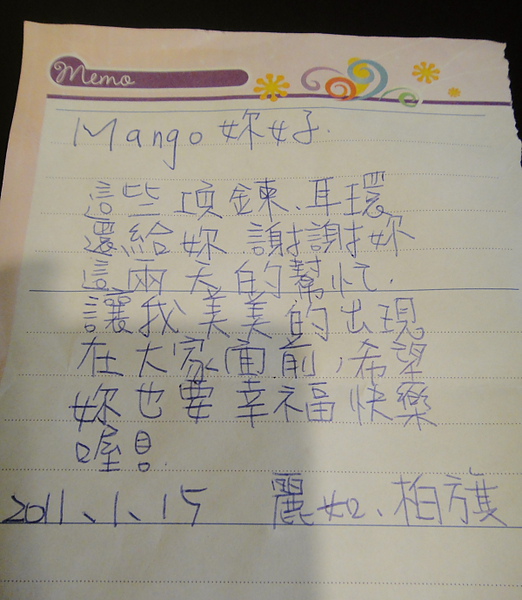 Memo
Mango 妳好.
這些項鍊、耳環
還給妳 謝謝妳
這兩天的幫忙.
讓我美美的出現
在大家面前,希望
妳也要幸福快樂
喔!
2011、1、15 麗如、柏旗